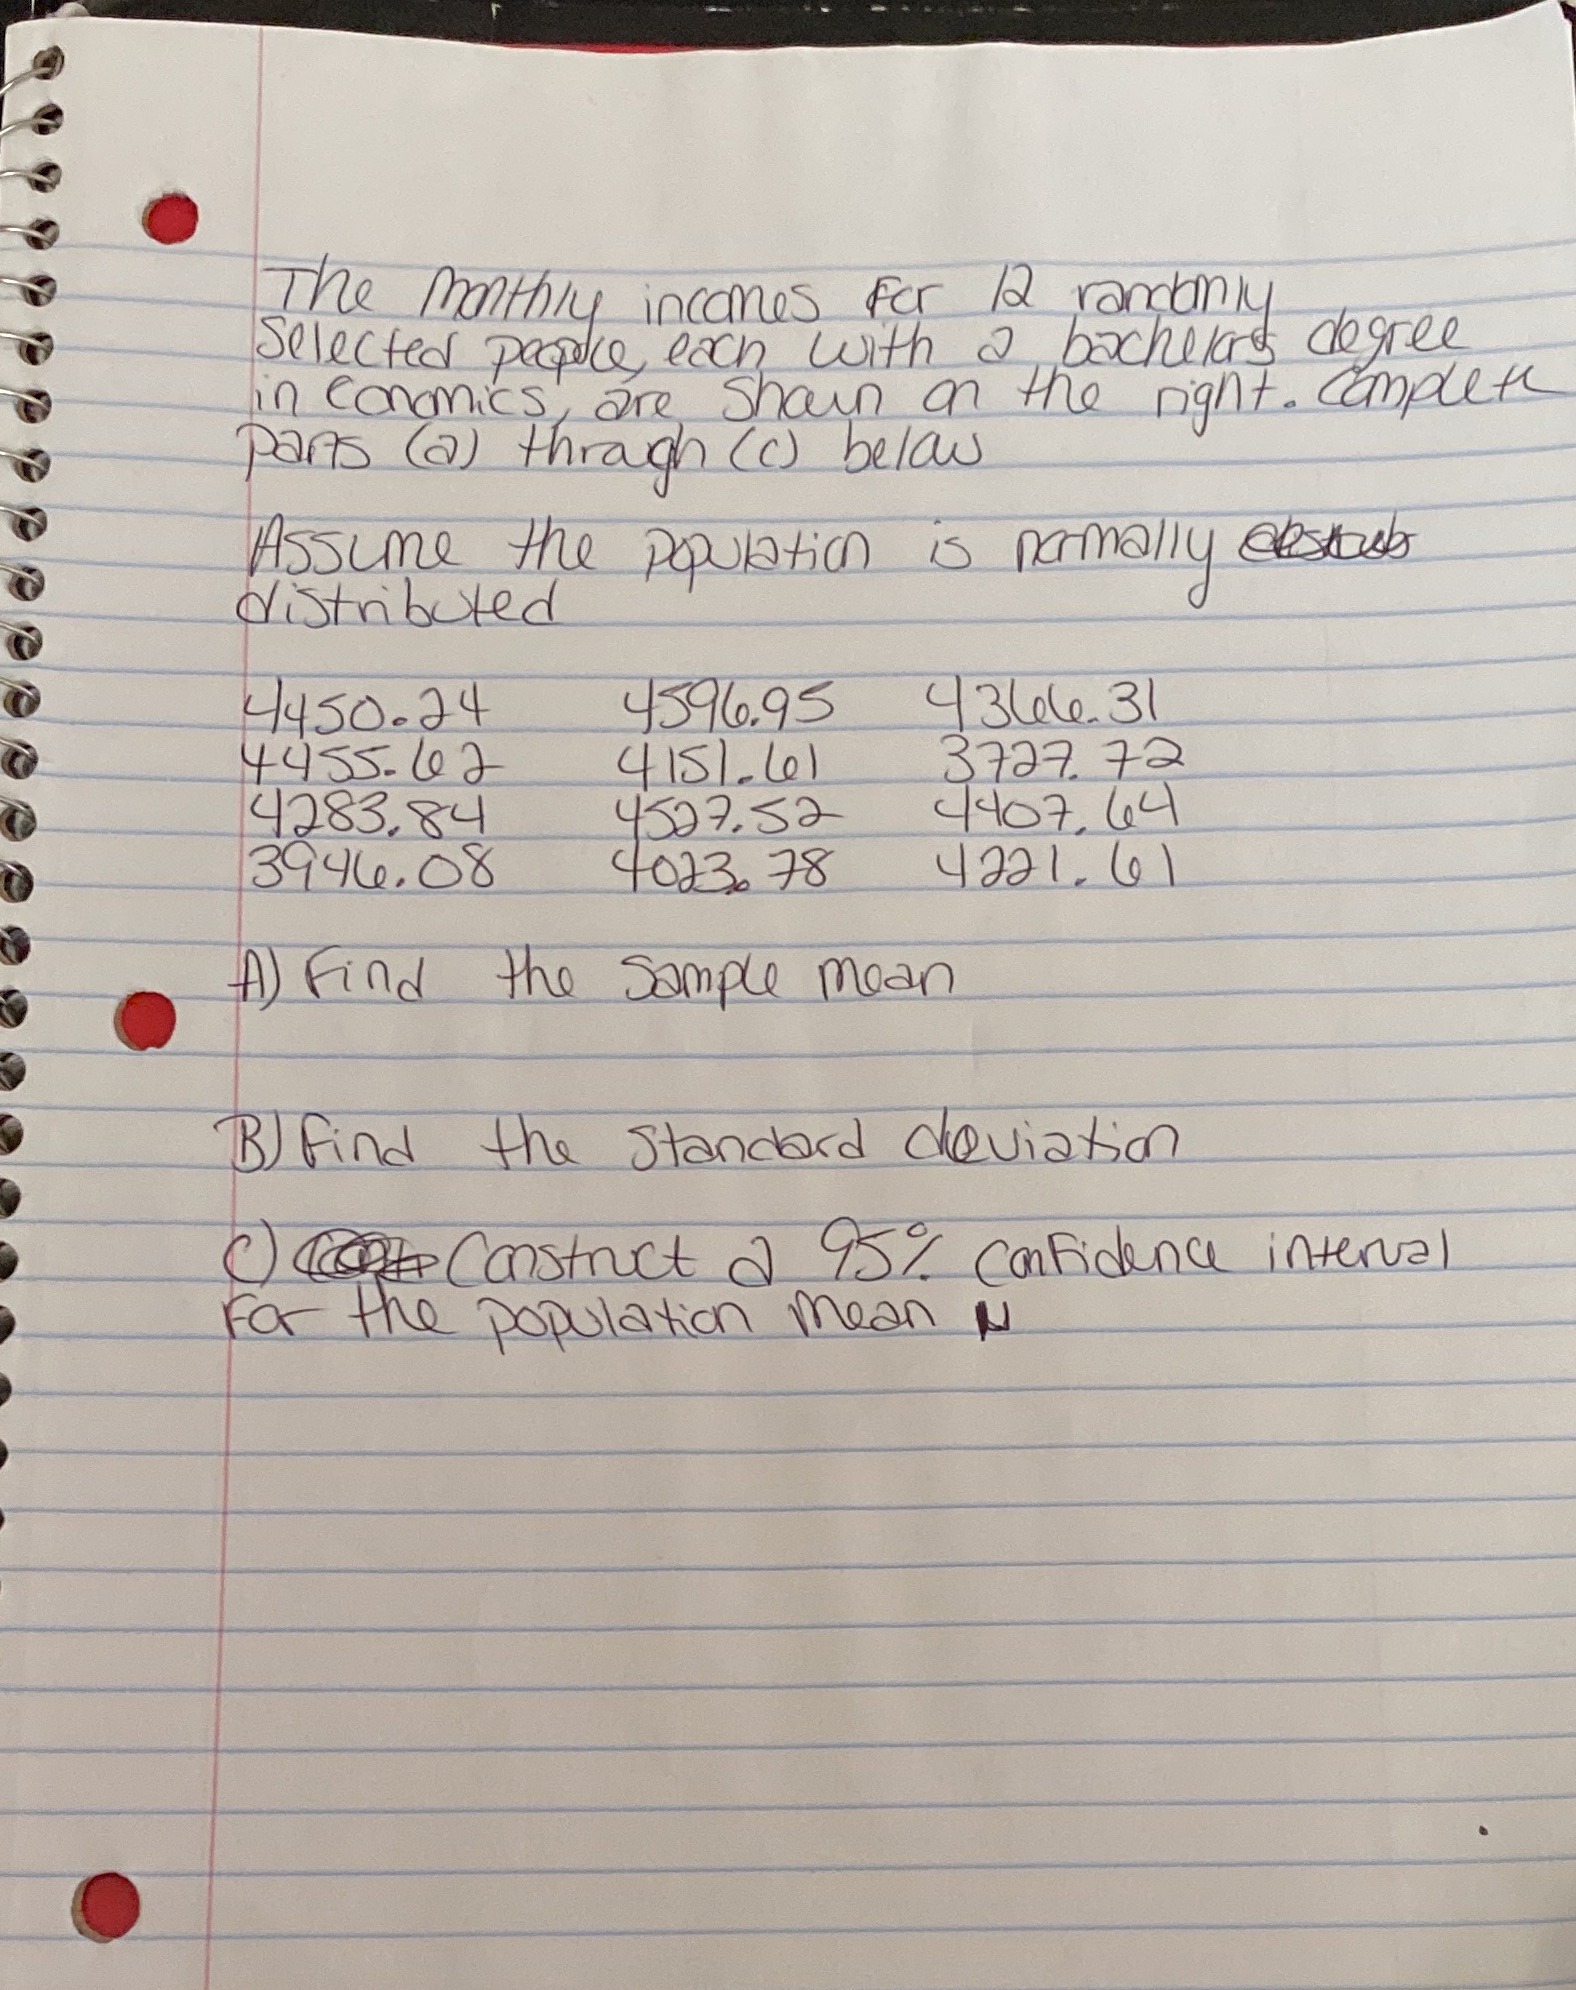 The monthly incomes for 12 randomly
selected people, each with a bachelor's degree
in economics, are shown on the right. Complete
parts (a) through (c) below
Assume the population is normally
distributed
4450.24 4596.95 4366.31
4455.62 4151.61 3727.72
4283.84 4527.52 4407.64
3946.08 4023.78 4221.61
A) Find the sample mean
B) Find the standard deviation
C) Construct a 95% confidence interval
for the population mean μ